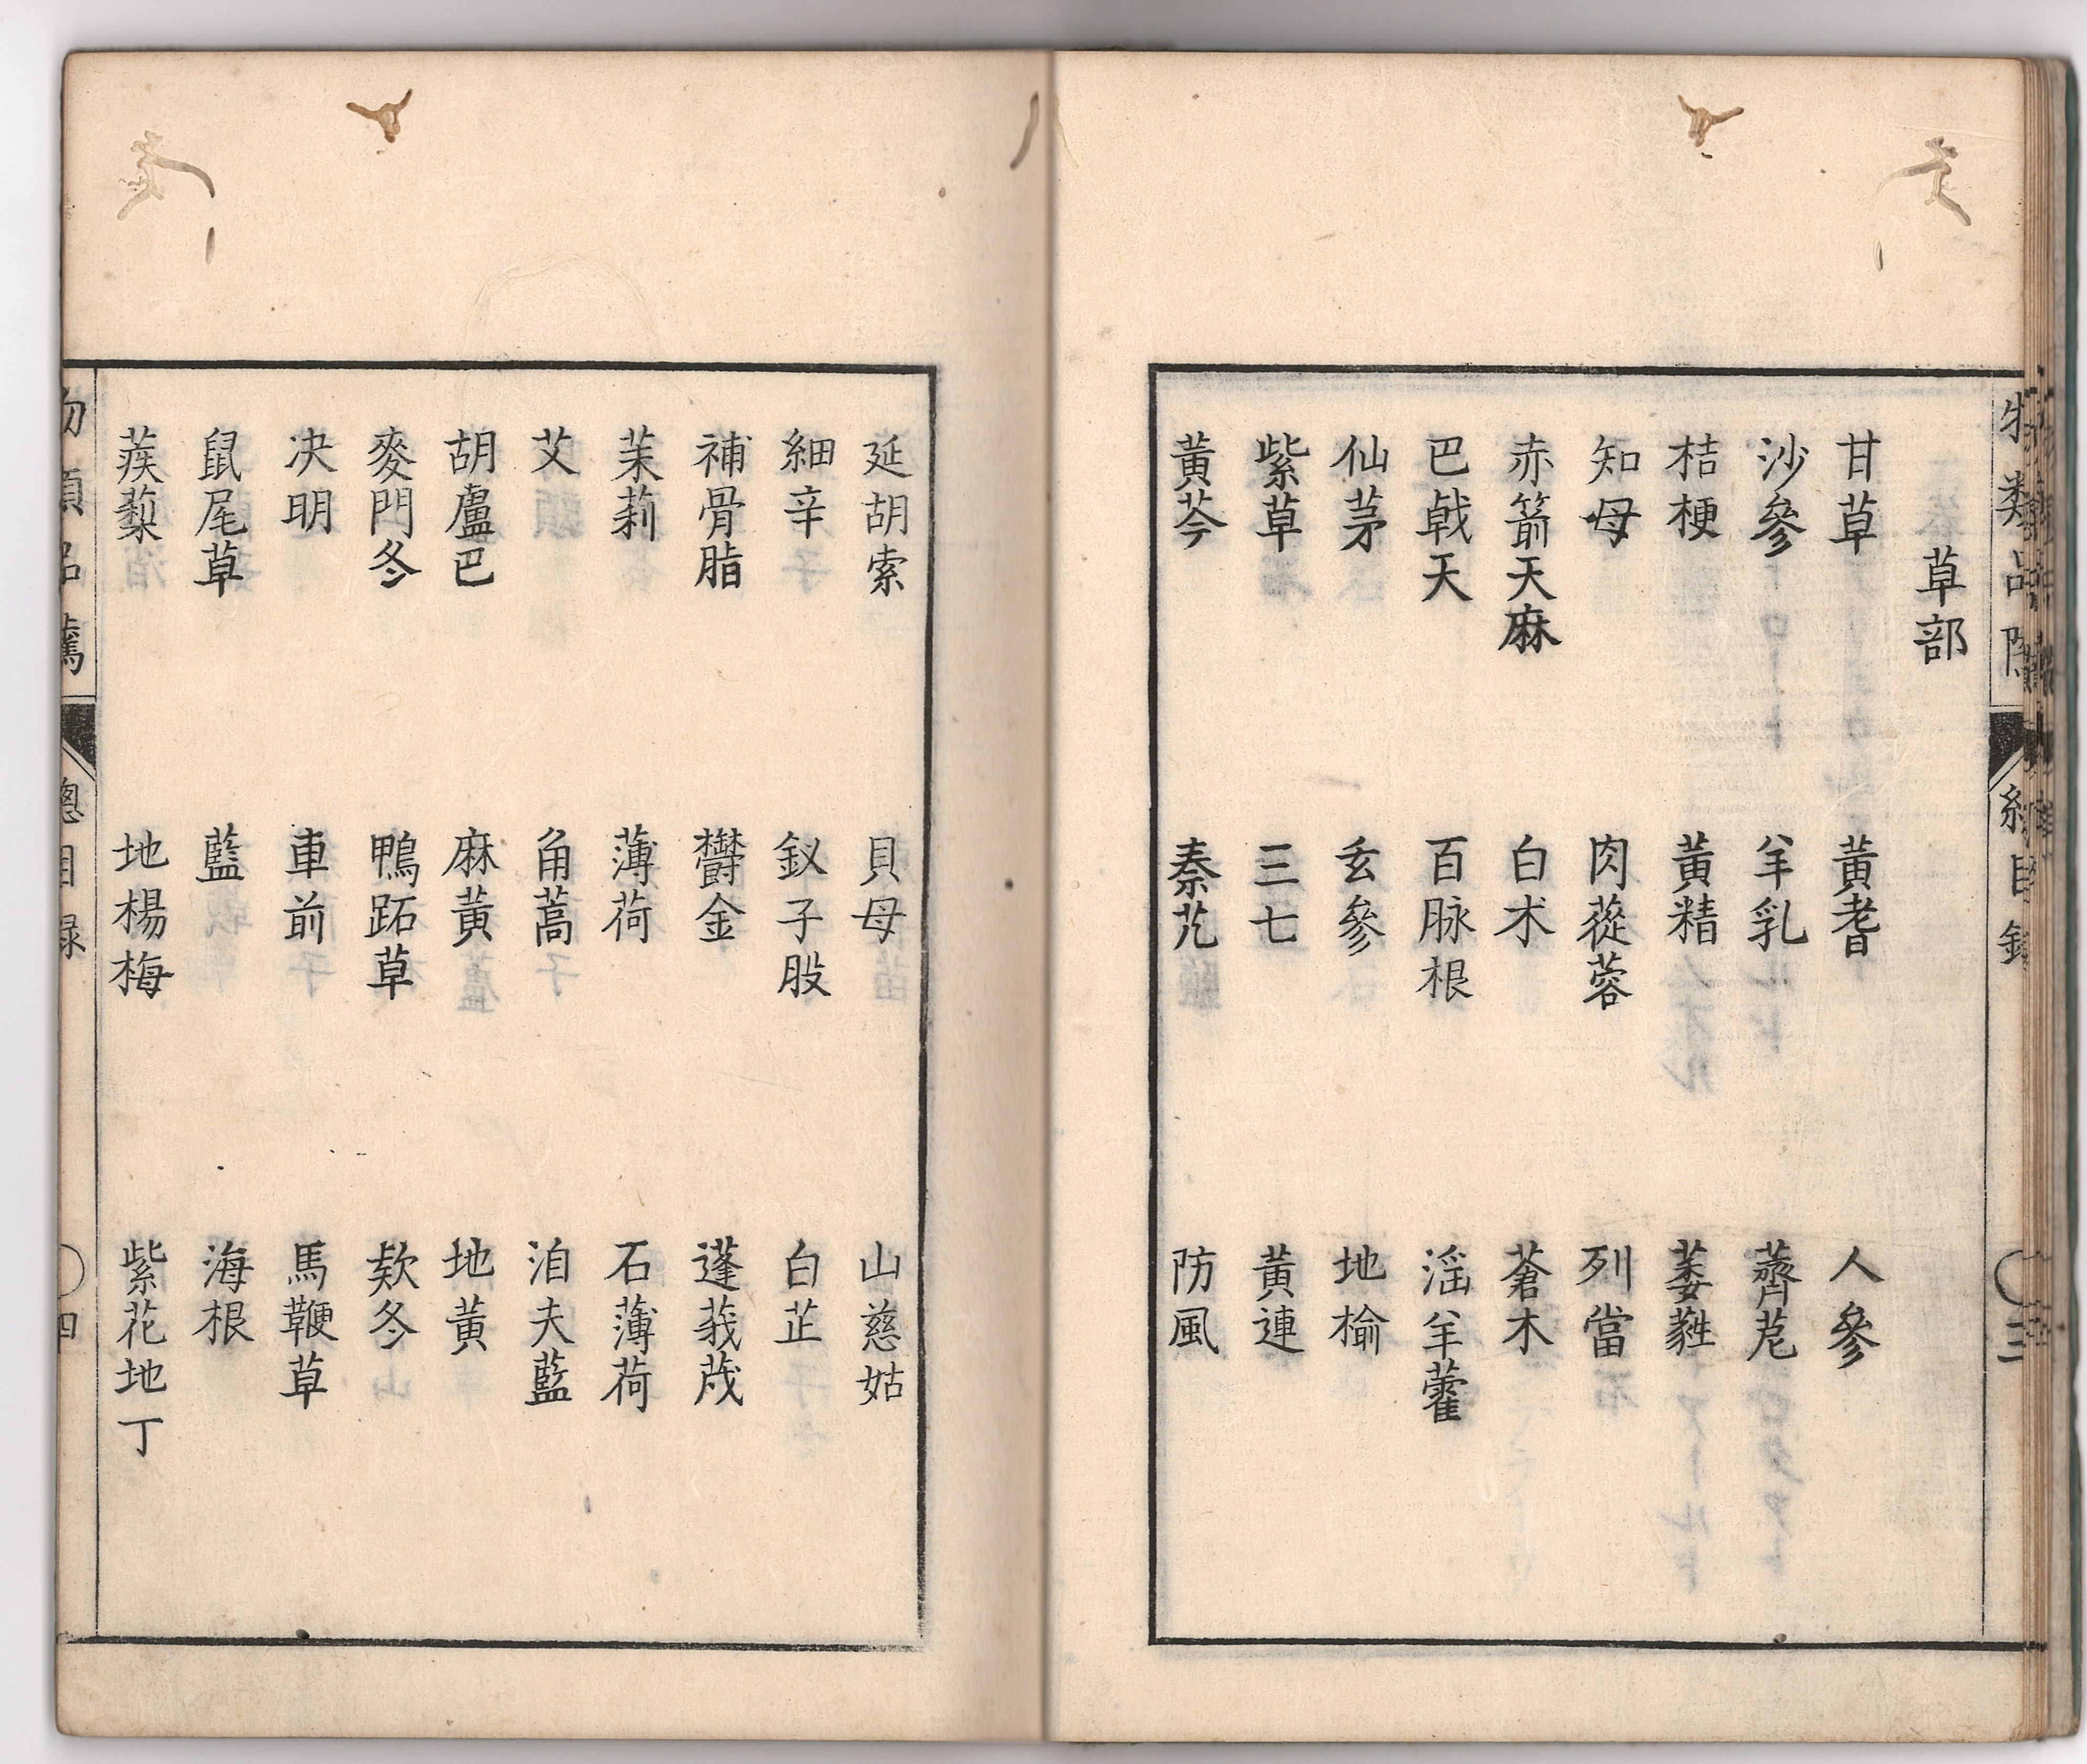 草部
甘草 黃耆 人參
沙參 羊乳 薺苨
桔梗 黃精 萎蕤
知母 肉蓯蓉 列當
赤箭天麻 白朮 蒼木
巴戟天 百脉根 滛羊藿
仙茅 玄參 地榆
紫草 三七 黃連
黃芩 秦艽 防風
延胡索 貝母 山慈姑
細辛 釵子股 白芷
補骨脂 欝金 蓬莪茂
茉莉 薄荷 石薄荷
艾 角蒿 洎夫藍
胡盧巴 麻黃 地黃
麥門冬 鴨跖草 欵冬
决明 車前 馬鞭草
鼠尾草 藍 海根
蒺藜 地楊梅 紫花地丁
物類品隲 總目録 四